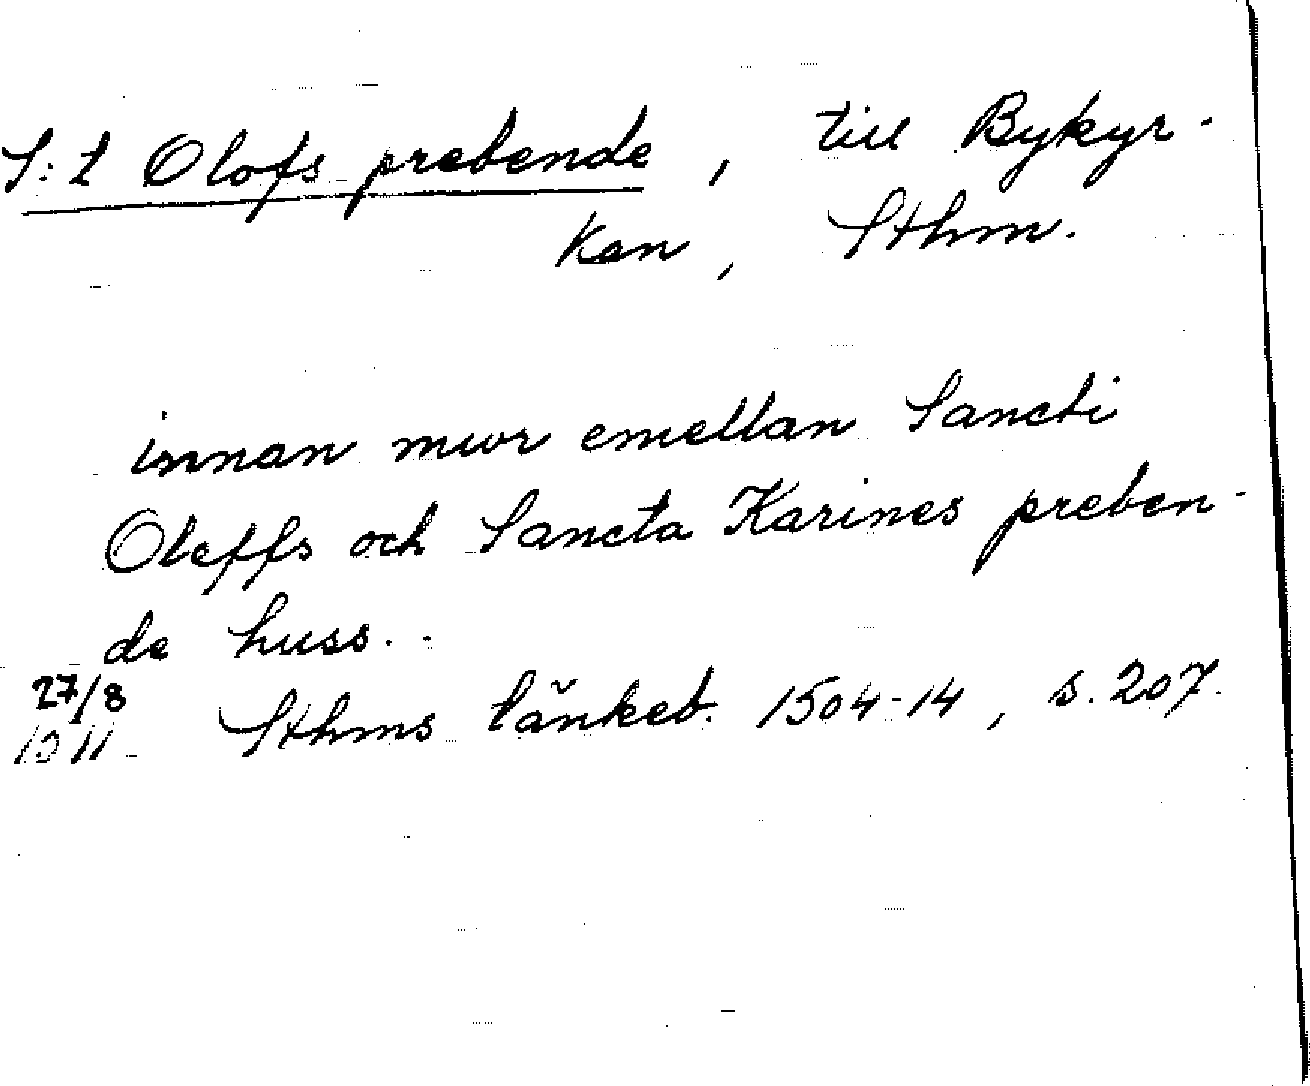 S:t Olofs prebende, till Bykyr-
kan, Sthm.
innan mwr emellan Sancti
Oleffs och Sancta Karines preben-
de huss..
27/8
1511 Sthms tänkeb. 1504-14, s. 207.